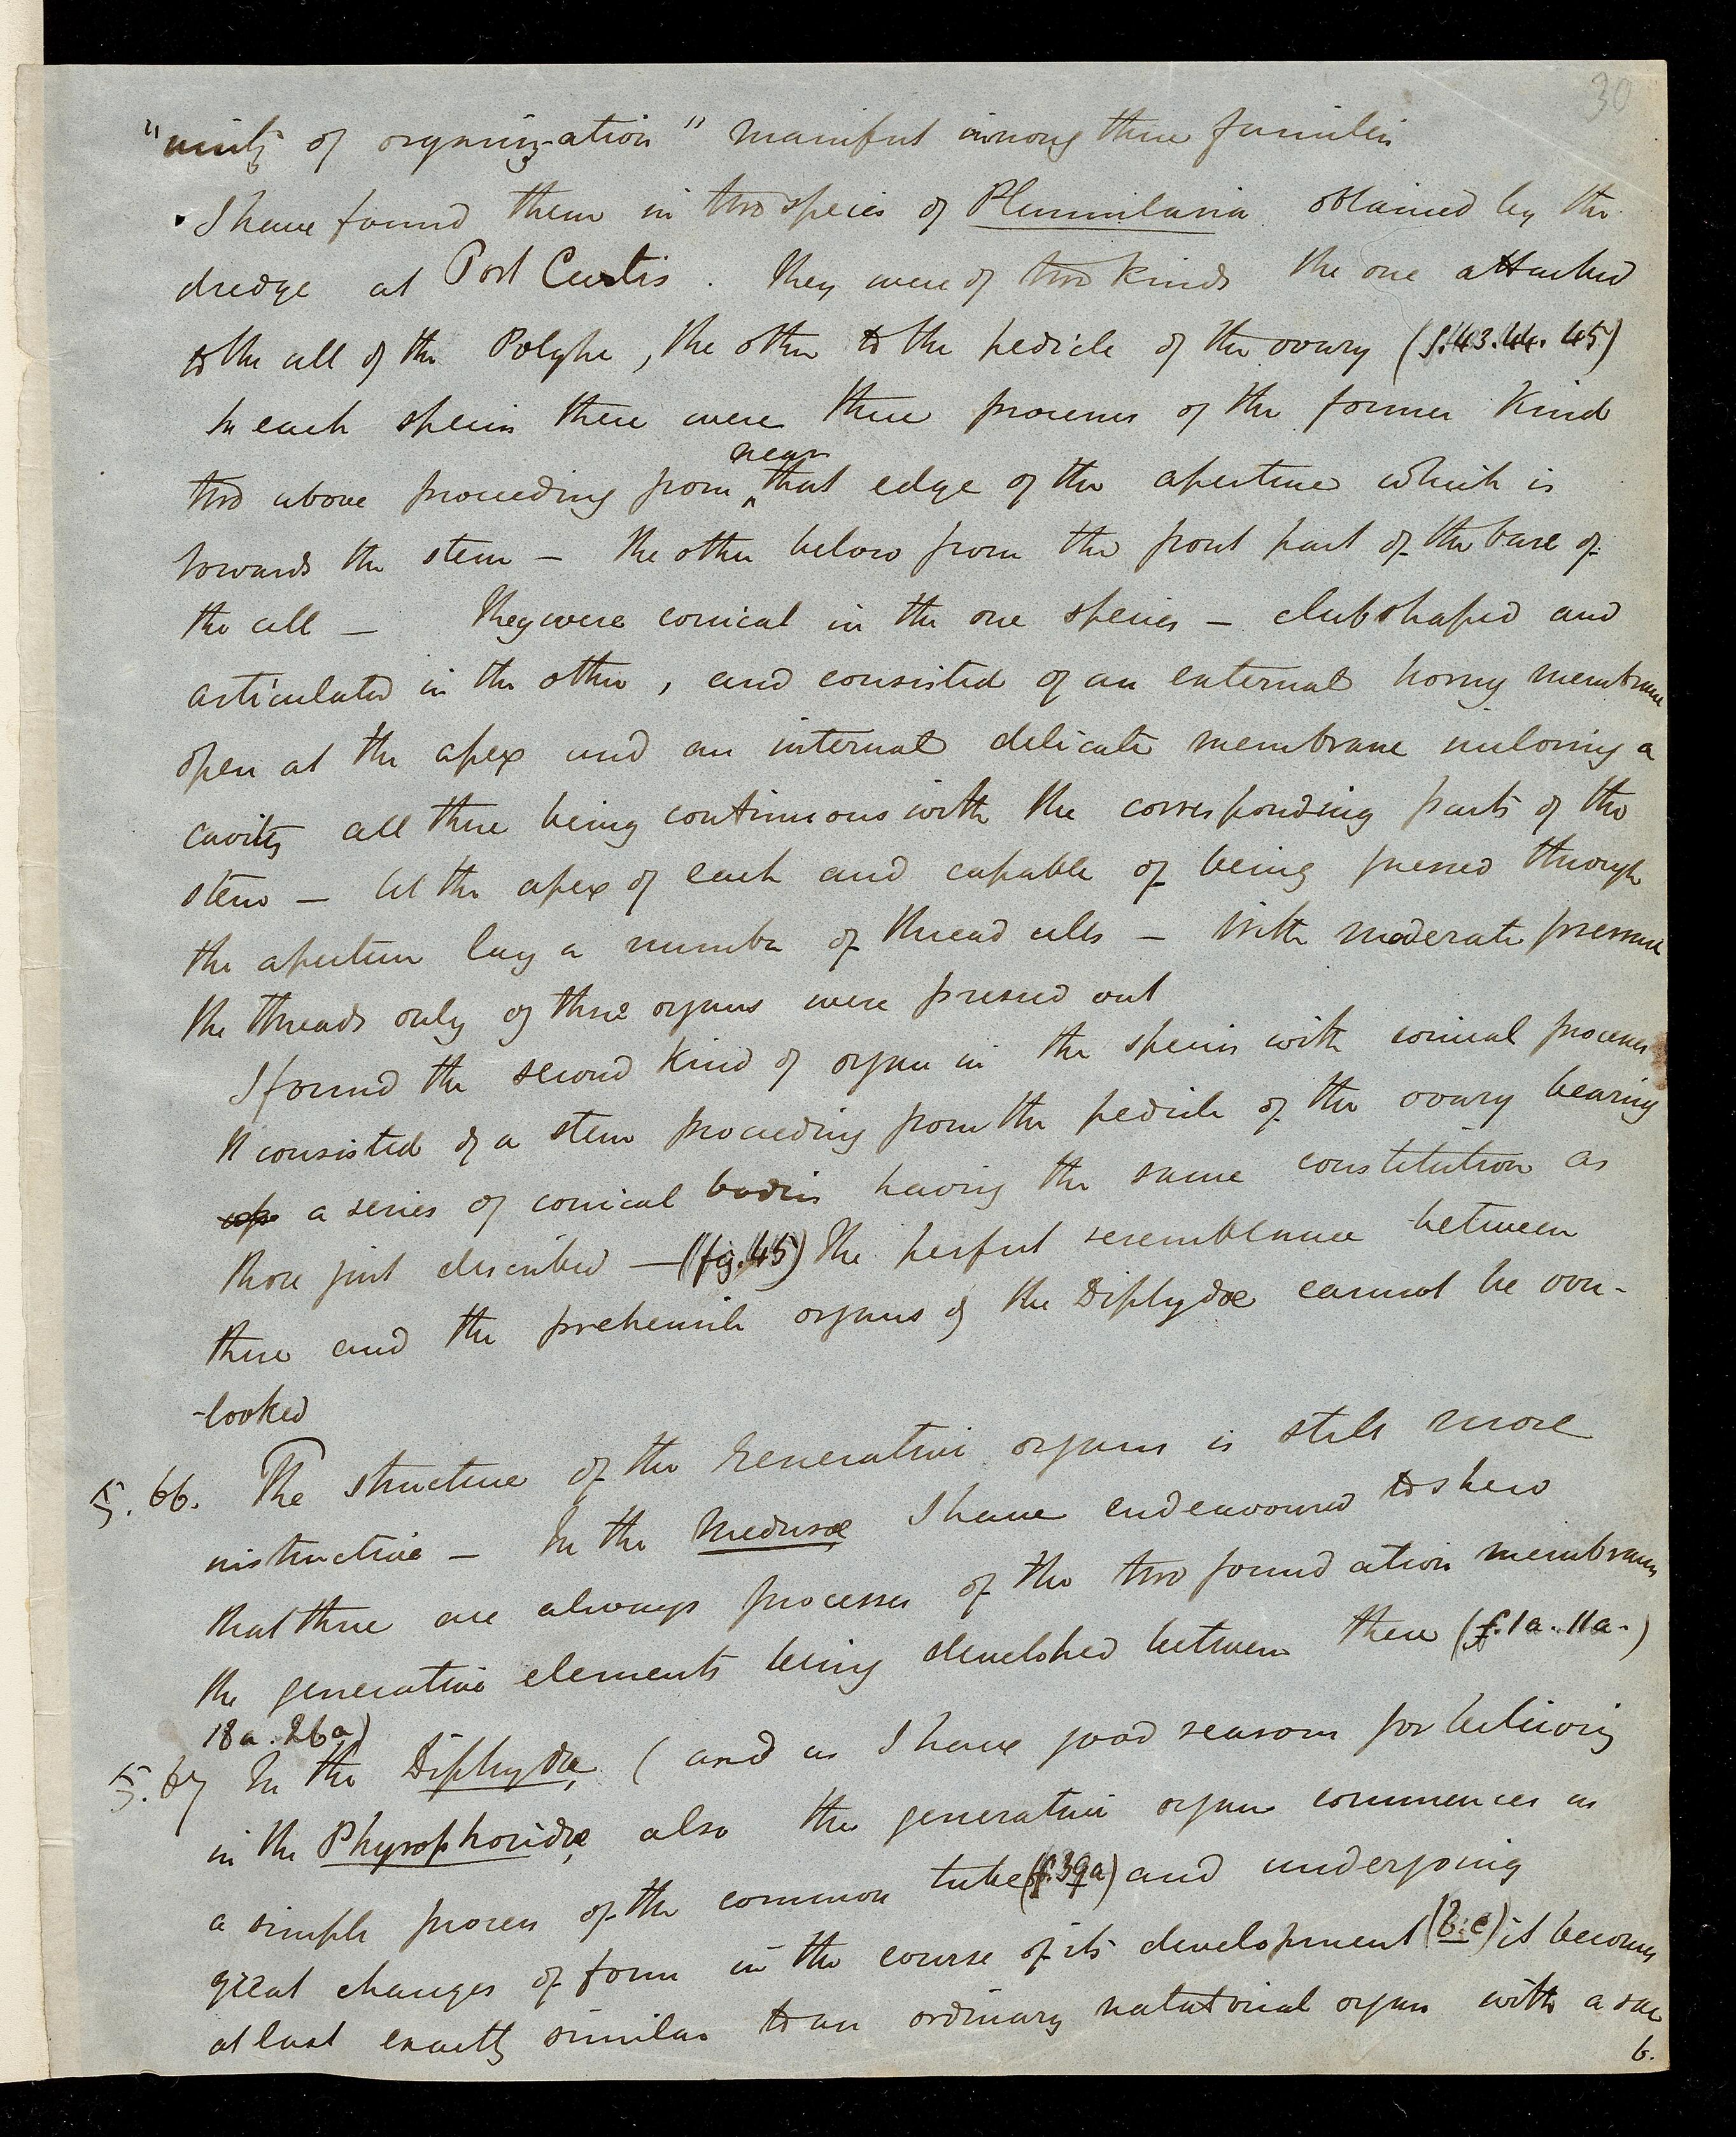 30
"unity of organization" manifest among these families
I have found them in two species of Plumularia obtained by the
dredge at Port Curtis. They were of two kinds the one attached
to the cell of the Polype, the other to the pedicle of the ovary (f. 43. 44. 45)
In each species there were three processes of the former kind
near
two above proceeding from ^ that edge of the aperture which is
towards the stem – the other below from the front part of the base of
the cell – They were conical in the one species – clubshaped and
articulated in the other, and consisted of an external horny membrane
open at the apex and an internal delicate membrane inclosing a
cavity all these being continuous with the corresponding parts of the
stem – At the apex of each and capable of being pressed through
the aperture lay a number of thread cells – With moderate pressure
the threads only of these organs were pressed out
I found the second kind of organ in the species with conical processes
It consisted of a stem proceeding from the pedicle of the ovary bearing
a series of conical bodies having the same constitution as
those just described – (fig. 45) The perfect resemblance between
these and the prehensile organs of the Diphydæ cannot be over-
-looked
5. 66. The structure of the Generative organs is still more
instructive – In the Medusæ I have endeavoured to shew
that these are always processes of the two foundation membranes
the generative elements being developed between them (f. 1a. 11a.)
18a. 26a)
5. 67 In the Diphydæ, (and as I have good reasons for believing
in the Physophoridæ, also the generative organ commences as
a simple process of the common tube (f. 39a) and undergoing
great changes of form in the course of its development (b. c) it becomes
at last exactly similar to an ordinary natatorial organ with a sac
b.